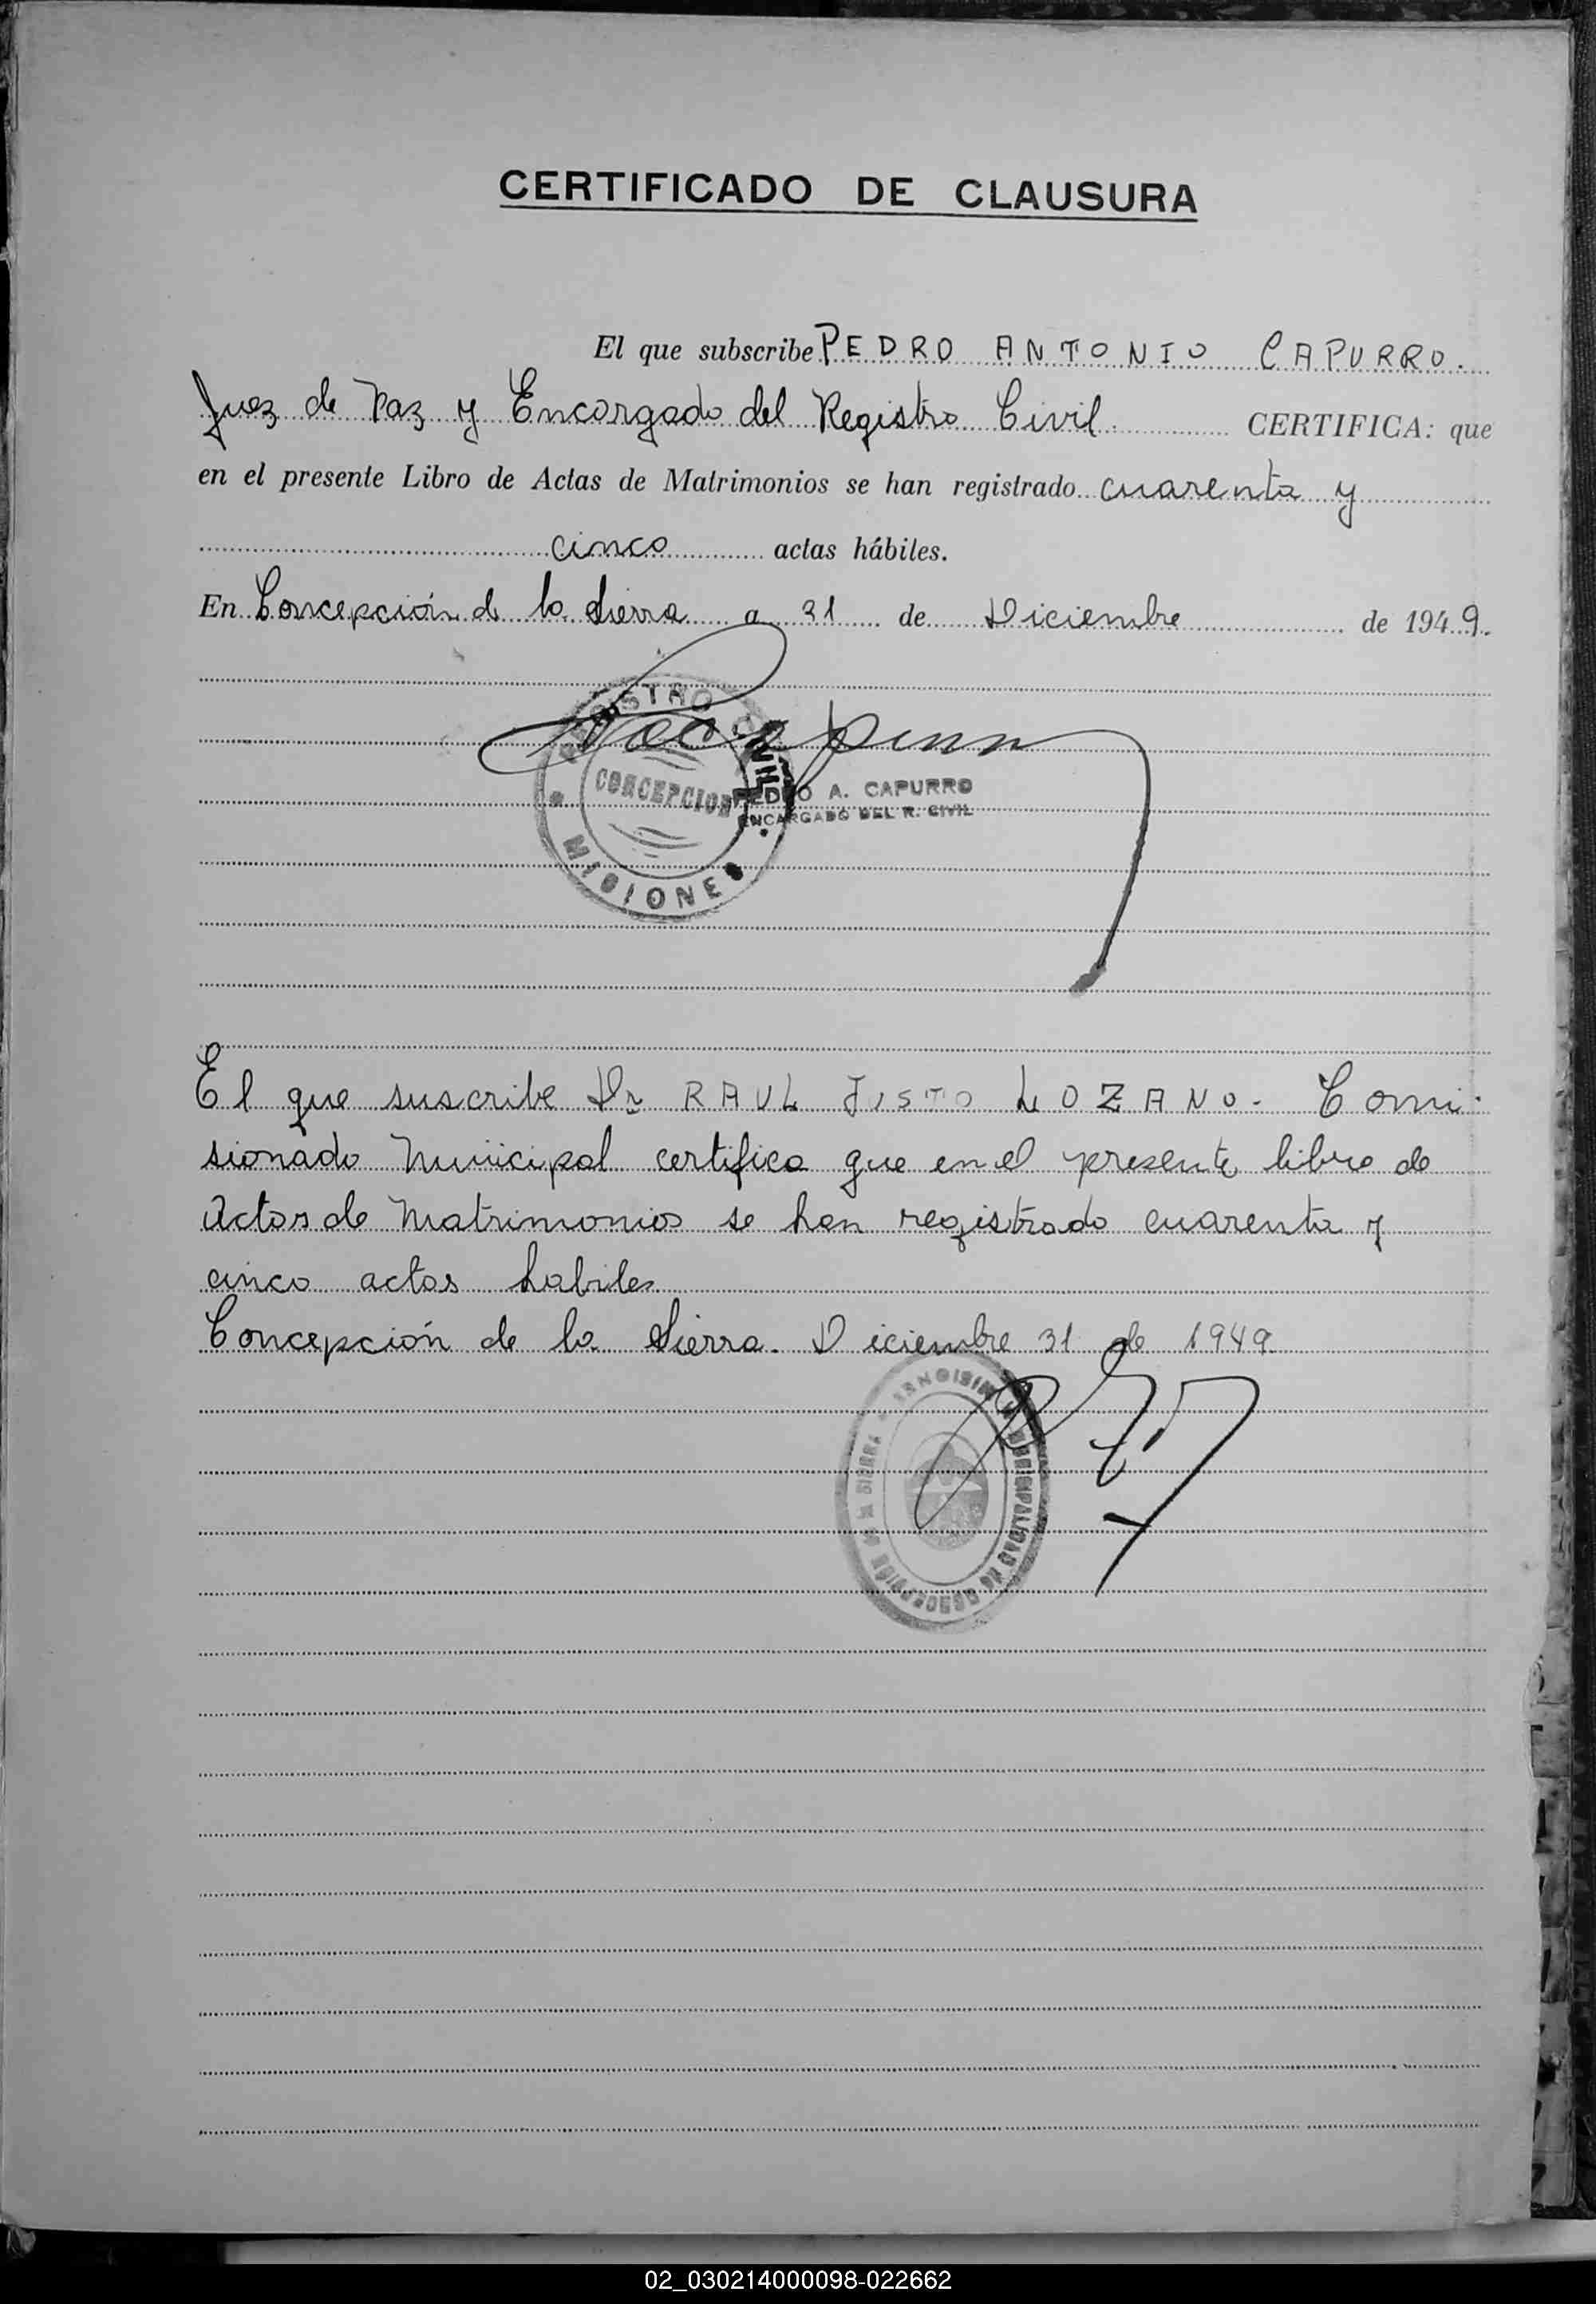 CERTIFICADO DE CLAUSURA
El que subscribe PEDRO ANTONIO CAPURRO.
Juez de Paz y Encargado del Registro Civil. CERTIFICA: que
en el presente Libro de Actas de Matrimonios se han registrado cuarenta y
cinco actas hábiles.
En Concepción de la Sierra a 31 de Diciembre de 1949.
REGISTRO CIVIL
CONCEPCION
MISIONES
PEDRO A. CAPURRO
ENCARGADO DEL R. CIVIL
El que suscribe Dr RAUL JUSTO LOZANO. Comi-
sionado Municipal certifica que en el presente libro de
Actas de Matrimonios se han registrado cuarenta y
cinco actas habiles
Concepción de la Sierra. Diciembre 31 de 1949
MUNICIPALIDAD DE CONCEPCION DE LA SIERRA
02_030214000098-022662